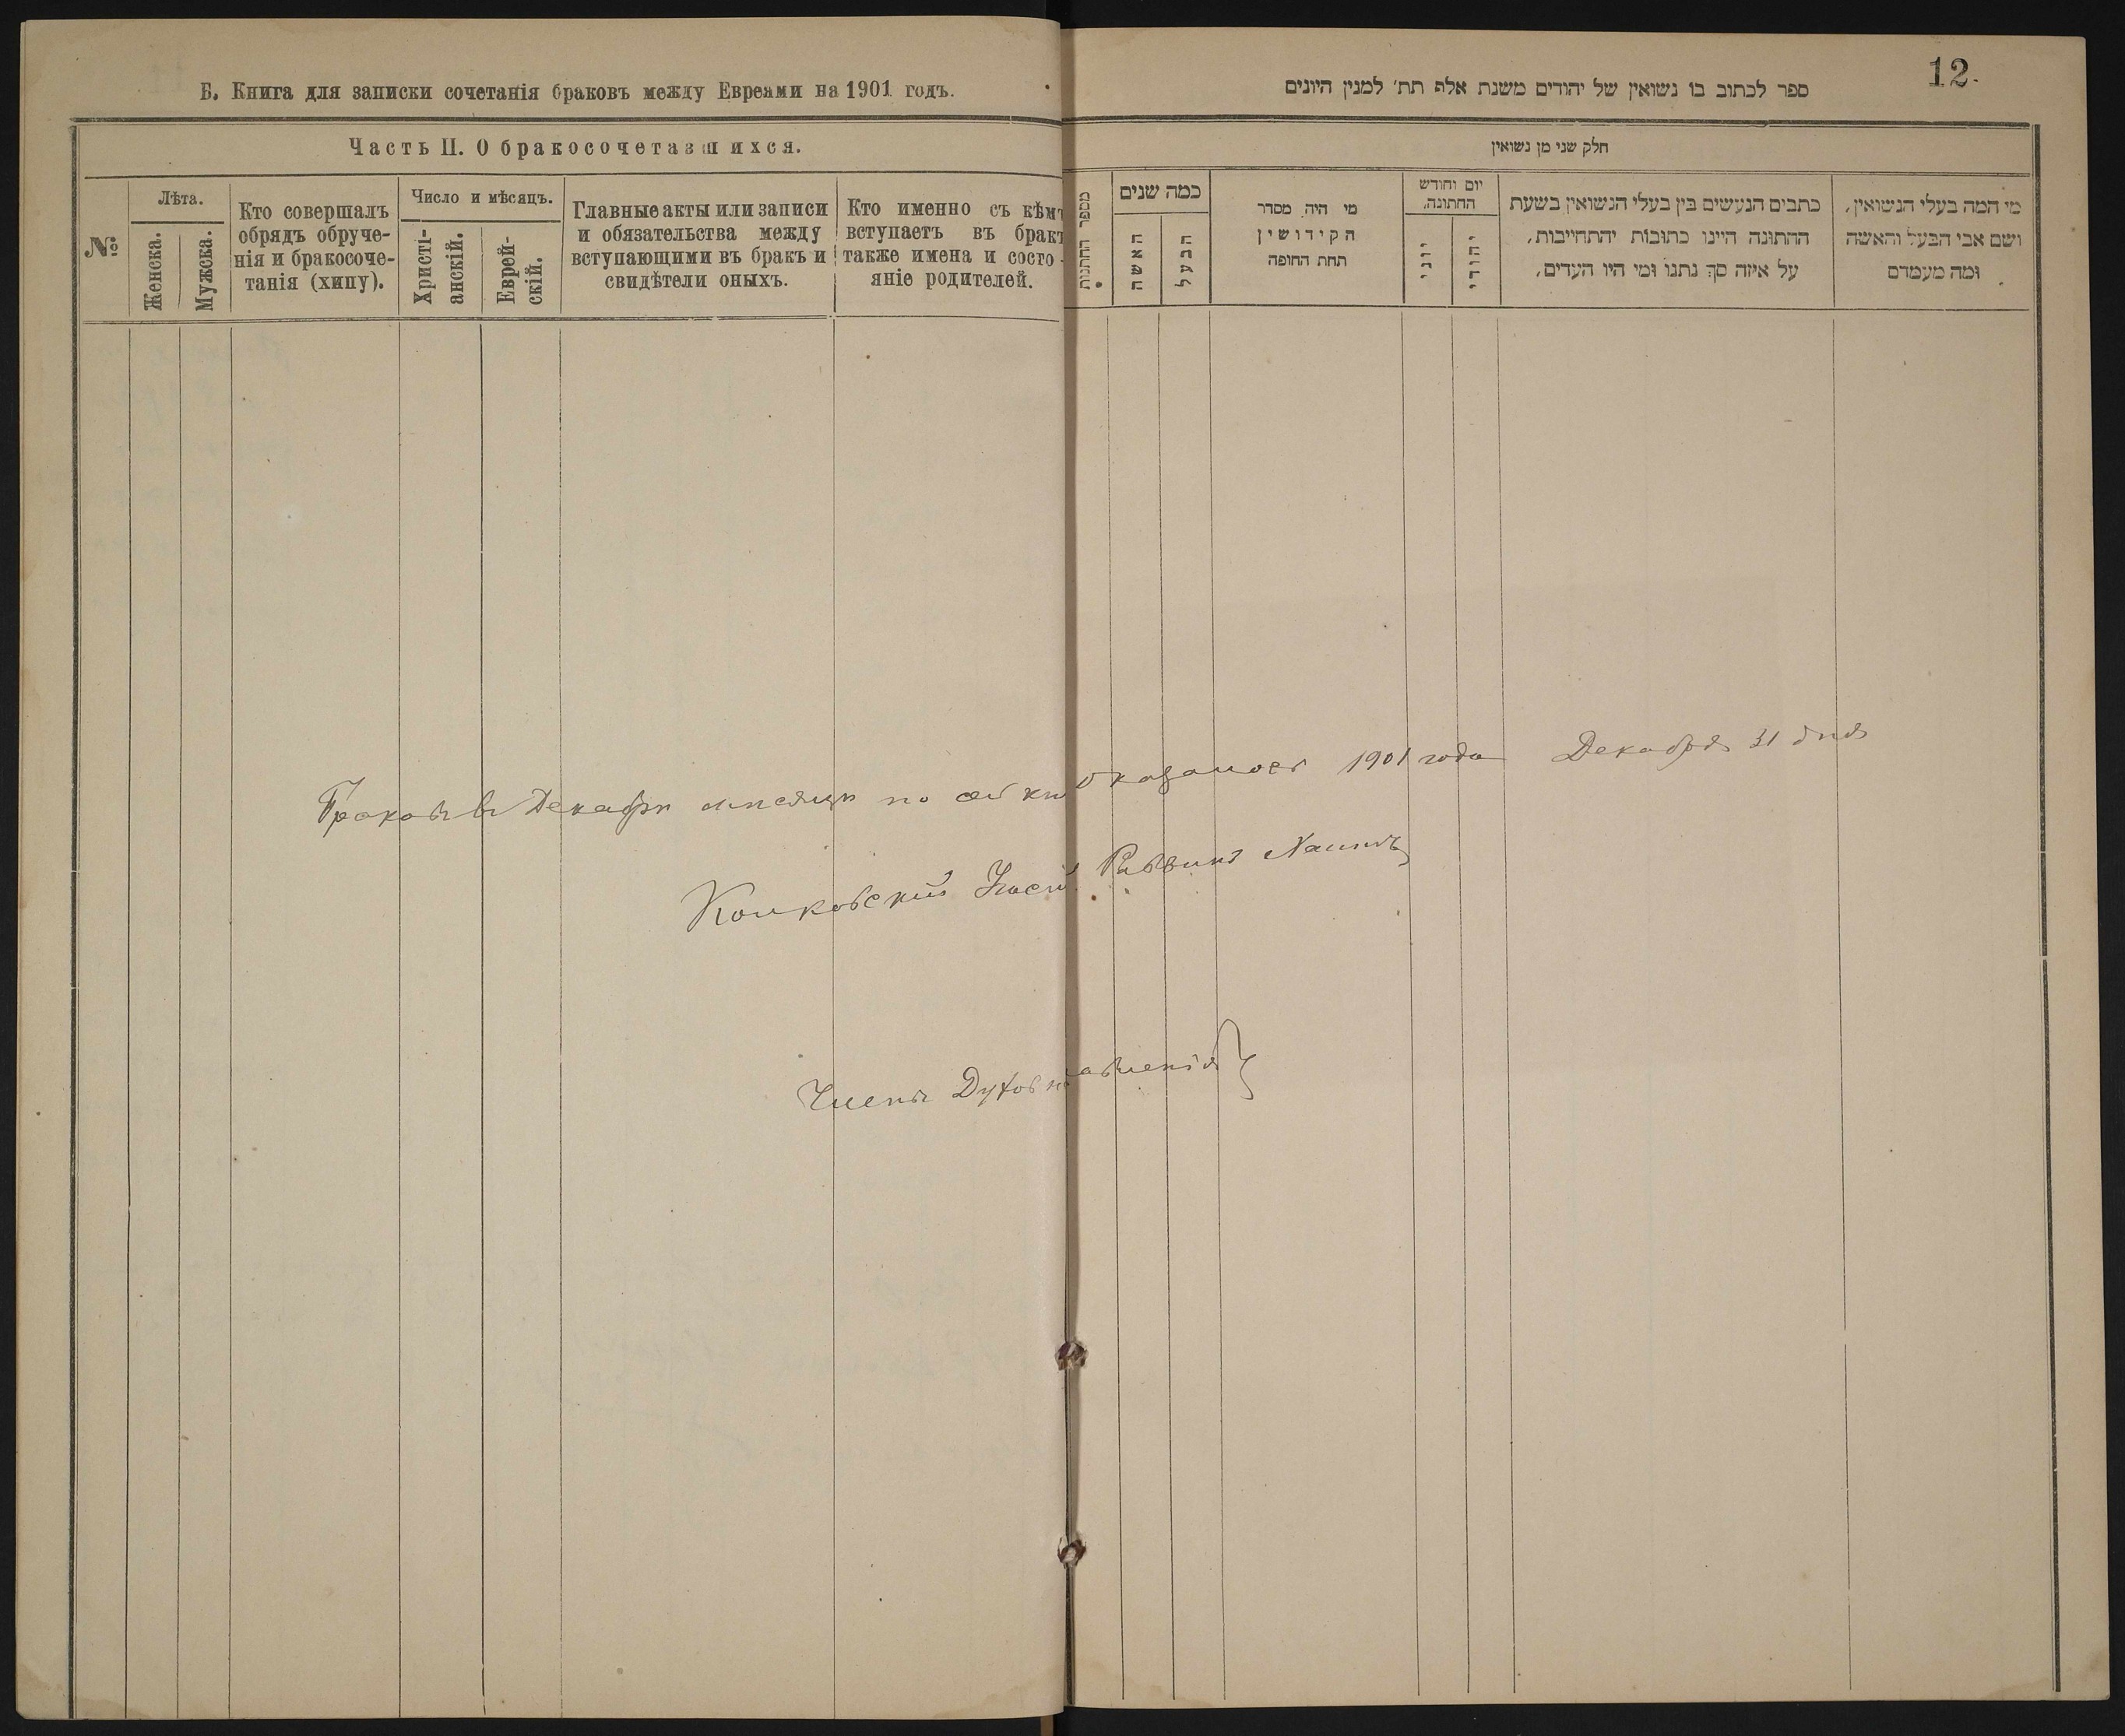 Б. Книга для записки сочетанія браковъ между Евреями на 1901 годъ.
Часть II. О бракосочетавшихся.
№
Лѣта.
Женска.
Мужска.
Кто совершалъ
обрядъ обруче-
нія и бракосоче-
танія (хипу).
Число и мѣсяцъ.
Христі-
анскій.
Еврей-
скій.
Главные акты или записи
и обязательства между
вступающими въ бракъ и
свидѣтели оныхъ.
Кто именно съ кѣмъ
вступаетъ въ бракъ
также имена и состо-
яніе родителей.
12.
ספר לכתוב בו נשואין של יהודים משנת אלף תת׳ למנין היונים
חלק שני מן נשואין
מספר החתונות
כמה שנים
האשה
הבעל
מי היה מסדר
הקידושין
תחת החופה
יום וחודש
החתונה,
יוני
יהודי
כתבים הנעשים בין בעלי הנשואין בשעת
החתונה היינו כתובות יהתחייבות,
על איזה סך נתנו ומי היו העדים,
מי המה בעלי הנשואין,
ושם אבי הבעל והאשה
ומה מעמדם
Браковъ в Декабрѣ мѣсяцѣ по сей кн оказалось 1901 года Декабря 31 дня
Раввинъ
Члены Духовн авленія